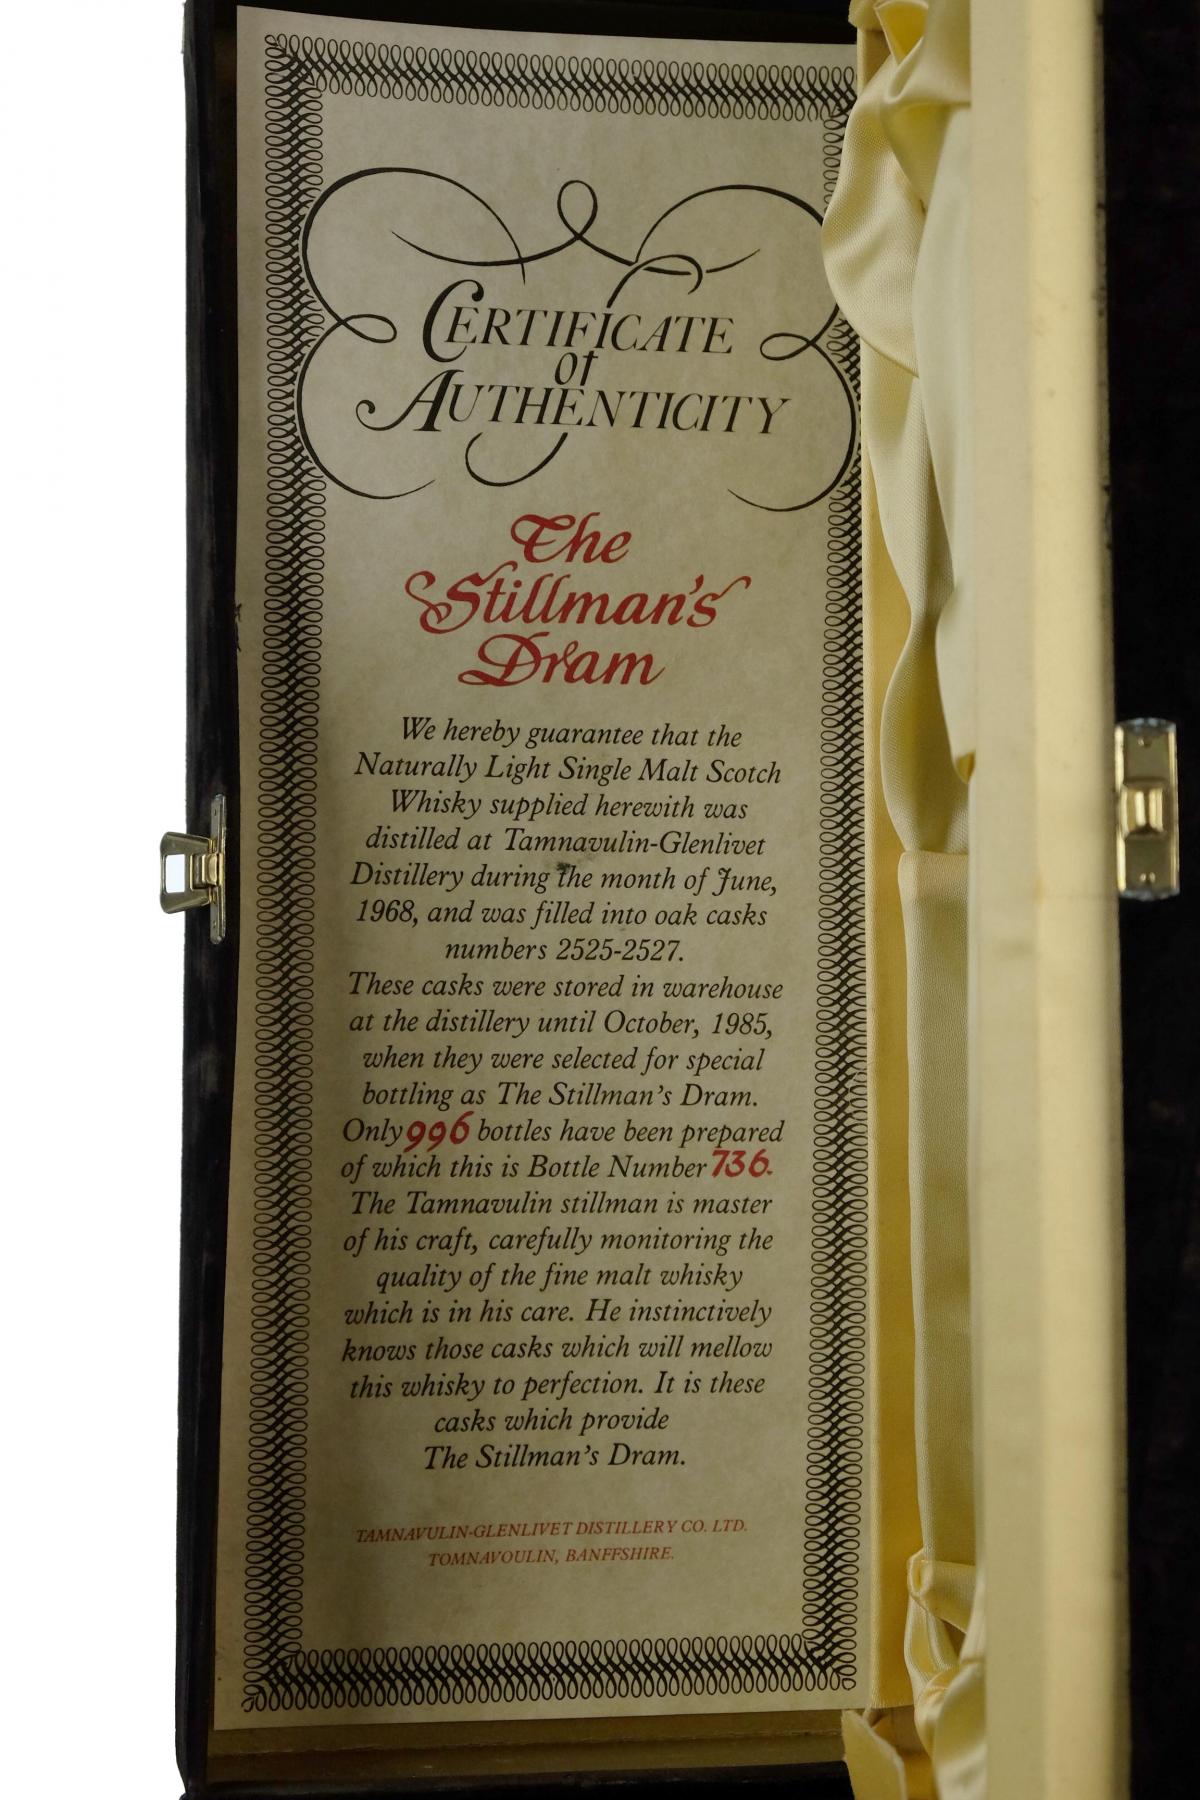 CERTIFICATE
of
AUTHENTICITY
The
Stillman's
Dram
We hereby guarantee that the
Naturally Light Single Malt Scotch
Whisky supplied herewith was
distilled at Tamnavulin-Glenlivet
Distillery during the month of June,
1968, and was filled into oak casks
numbers 2525-2527.
These casks were stored in warehouse
at the distillery until October, 1985,
when they were selected for special
bottling as The Stillman's Dram.
Only 996 bottles have been prepared
of which this is Bottle Number 736.
The Tamnavulin stillman is master
of his craft, carefully monitoring the
quality of the fine malt whisky
which is in his care. He instinctively
knows those casks which will mellow
this whisky to perfection. It is these
casks which provide
The Stillman's Dram.
TAMNAVULIN-GLENLIVET DISTILLERY CO. LTD.
TOMNAVOULIN, BANFFSHIRE.